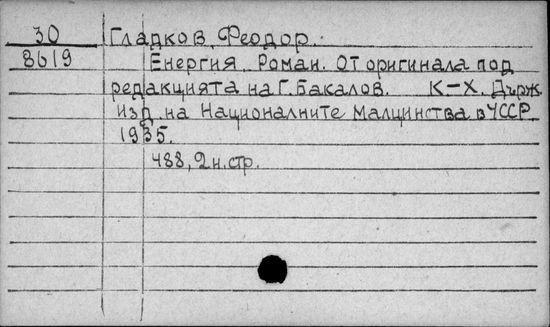 30 Гладков, Феодор.
8619 Енергия. Роман. От оригинала под
редакцията на Г. Бакалов. К-Х. Държ.
изд. на Националните Малцинства в УССР
1935.
488, 2 н. стр.